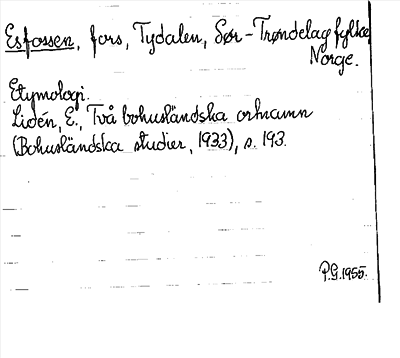 Esfossen, fors, Tydalen, Sør-Trøndelag fylke,
Norge.
Etymologi.
Lidén, E., Två bohusländska ortnamn
(Bohusländska studier, 1933), s. 193.
P.G. 1955.